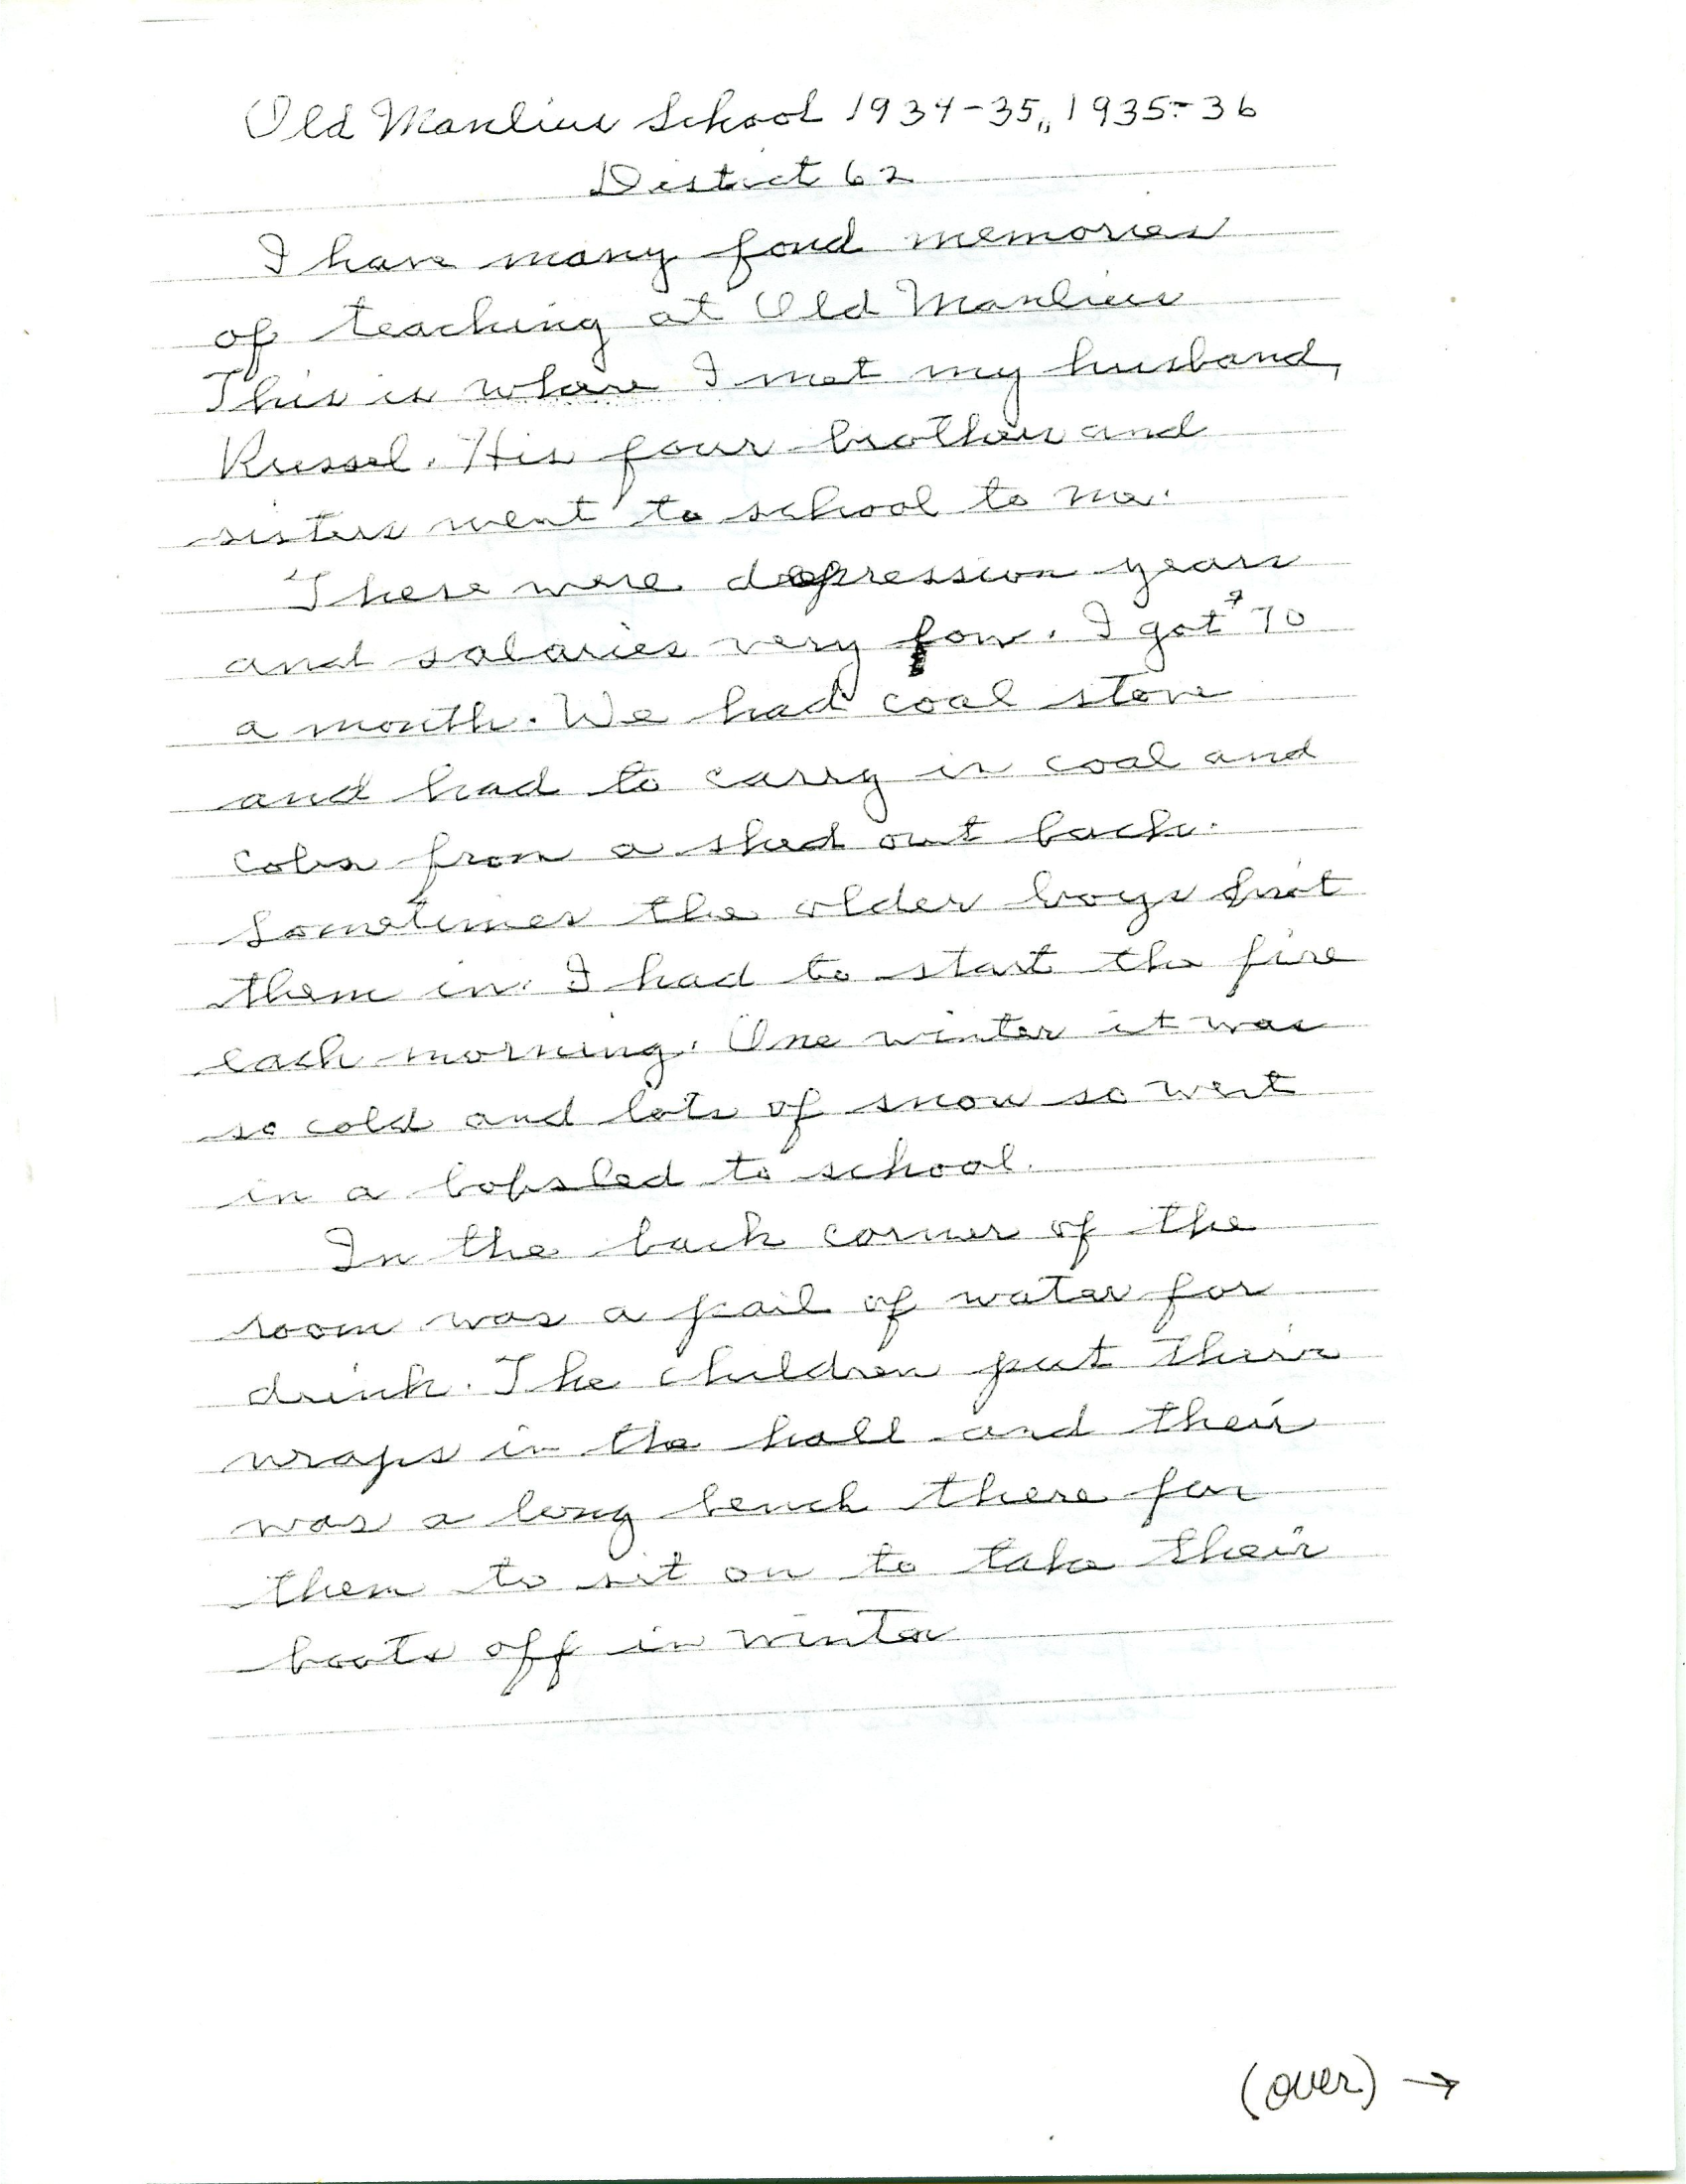 Old Manlius School 1934-35,, 1935-36
District 62
I have many fond memories
of teaching at Old Manlius
This is where I met my husband,
Russel. His four brothers and
sisters went to school to me.
These were depression years
and salaries very low. I got $70
a month. We had coal stove
and had to carry in coal and
cobs from a shed out back.
Sometimes the older boys put
them in. I had to start the fire
each morning. One winter it was
so cold and lots of snow so went
in a bobsled to school.
In the back corner of the
room was a pail of water for
drink. The children put their
wraps in the hall and their
was a long bench there for
them to sit on to take their
boots off in winter
(over) →